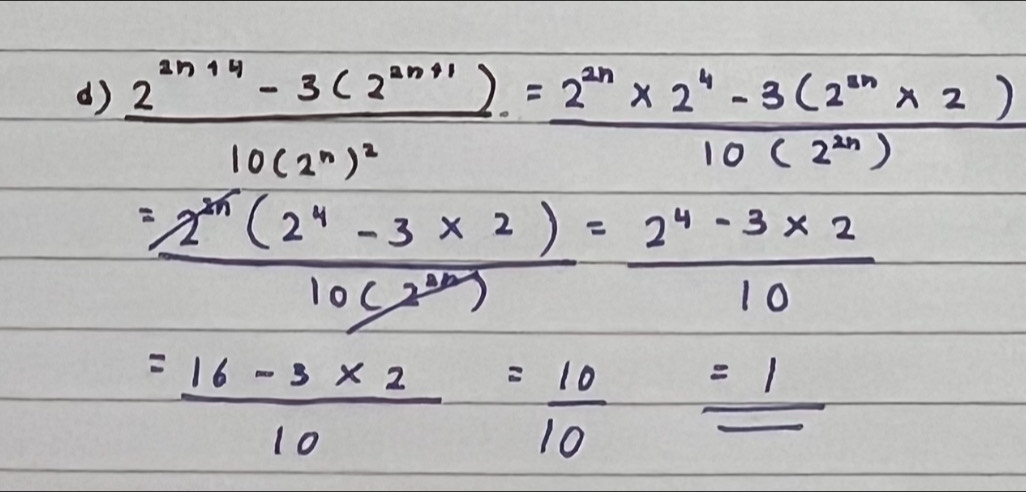 d) (2^(2n+4) - 3(2^(2n+1))) / (10(2^n)^2) = (2^(2n) × 2^4 - 3(2^(2n) × 2)) / (10(2^(2n)))
= (2^(2n)(2^4 - 3 × 2)) / (10(2^(2n))) = (2^4 - 3 × 2) / 10
= (16 - 3 × 2) / 10 = 10 / 10 = 1